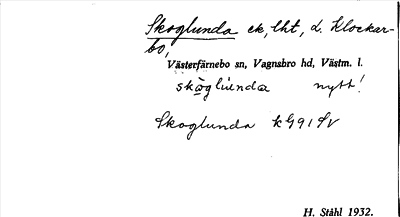 Skoglunda ek, lht, L. Klockar-
bo,
Västerfärnebo sn, Vagnsbro hd, Västm. l.
skòglúnda nytt!
Skoglunda k G91 SV
H. Ståhl 1932.